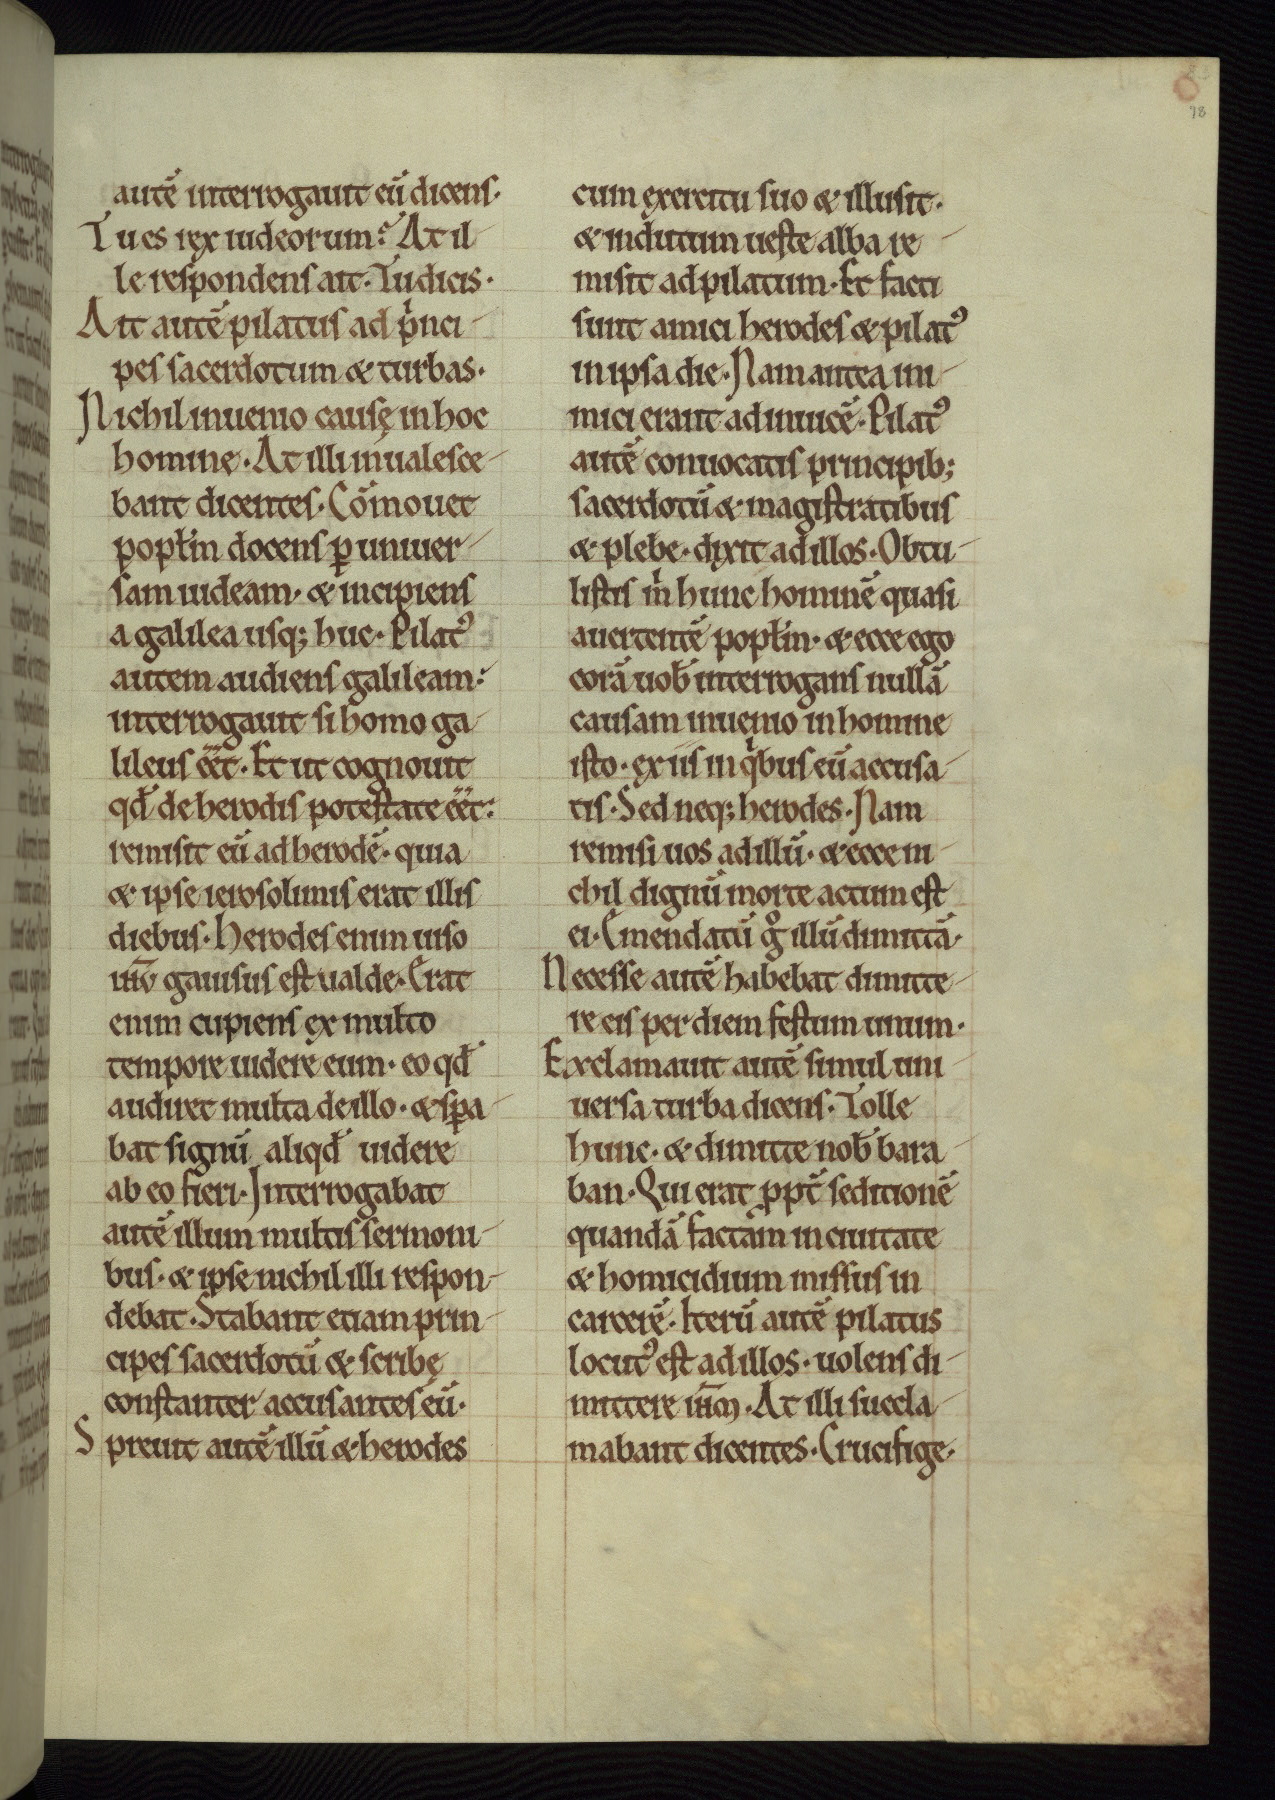 98
autē interrogauit eū dicens·
Tu es rex iudeorum? At il-
le respondens ait· Tu dicis·
Ait autē pilatus ad pͥnci-
pes sacerdotum & turbas·
Nichil inuenio causę in hoc
homine· At illi inualesce-
bant dicentes· Cōmouet
popłm docens ꝑ uniuer-
sam iudeam· & incipiens
a galilea usq; huc· Pilatꝰ
autem audiens galileam:
interrogauit si homo ga-
lileus eēt· Et ut cognouit
qđ de herodis potestate eēt:
remisit eū ad herodē· quia
& ipse ierosolimis erat illis
diebus· Herodes enim uiso
ihū gauisus est ualde· Erat
enim cupiens ex multo
tempore uidere eum· eo qđ
audiret multa de illo· & sꝑa-
bat signū aliqđ uidere
ab eo fieri· Interrogabat
autē illum multis sermoni-
bus· & ipse nichil illi respon-
debat· Stabant etiam prin-
cipes sacerdotū & scribę
constanter accusantes eū·
Spreuit autē illū & herodes
cum exercitu suo & illusit·
& indutum ueste alba re-
misit ad pilatum· Et facti
sunt amici herodes & pilatꝰ
in ipsa die· Nam antea ini-
mici erant ad inuicē· Pilatꝰ
autē conuocatis principib;
sacerdotū & magistratibus
& plebe· dixit ad illos· Obtu-
listis m̍ hunc hominē quasi
auertentē popłm· & ecce ego
corā uob̄ interrogans nullā
causam inuenio in homine
isto· ex iis in qͥbus eū accusa-
tis· Sed neq; herodes· Nam
remisi uos ad illū· & ecce ni-
chil dignū morte actum est
ei· Emendatū gͦ illū dimittā·
Necesse autē habebat dimitte-
re eis per diem festum unum·
Exclamauit autē simul uni-
uersa turba dicens· Tolle
hunc· & dimitte nob̄ bara-
ban· Qui erat ꝓpt̄ seditionē
quandā factam in ciuitate
& homicidium missus in
carcerē· Iterū autē pilatus
locutꝰ est ad illos· uolens di-
mittere ihm̄· At illi succla-
mabant dicentes· Crucifige·